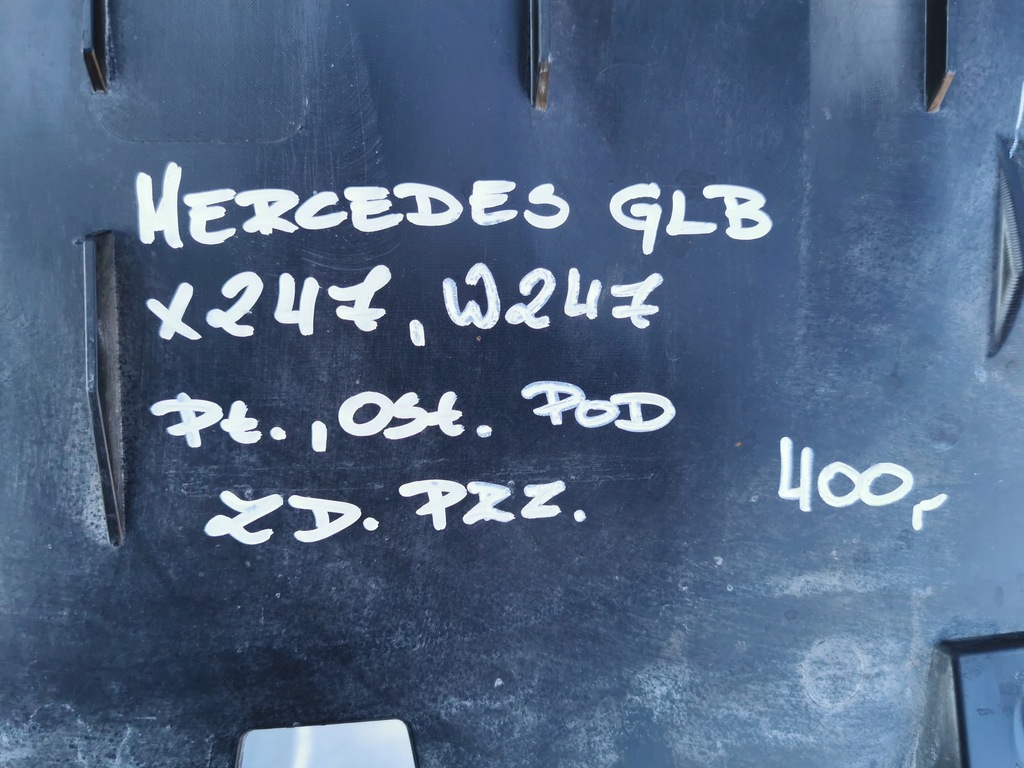 MERCEDES GLB
X247, W247
Pt., Ost. POD
ZD. PRZ.
400,-